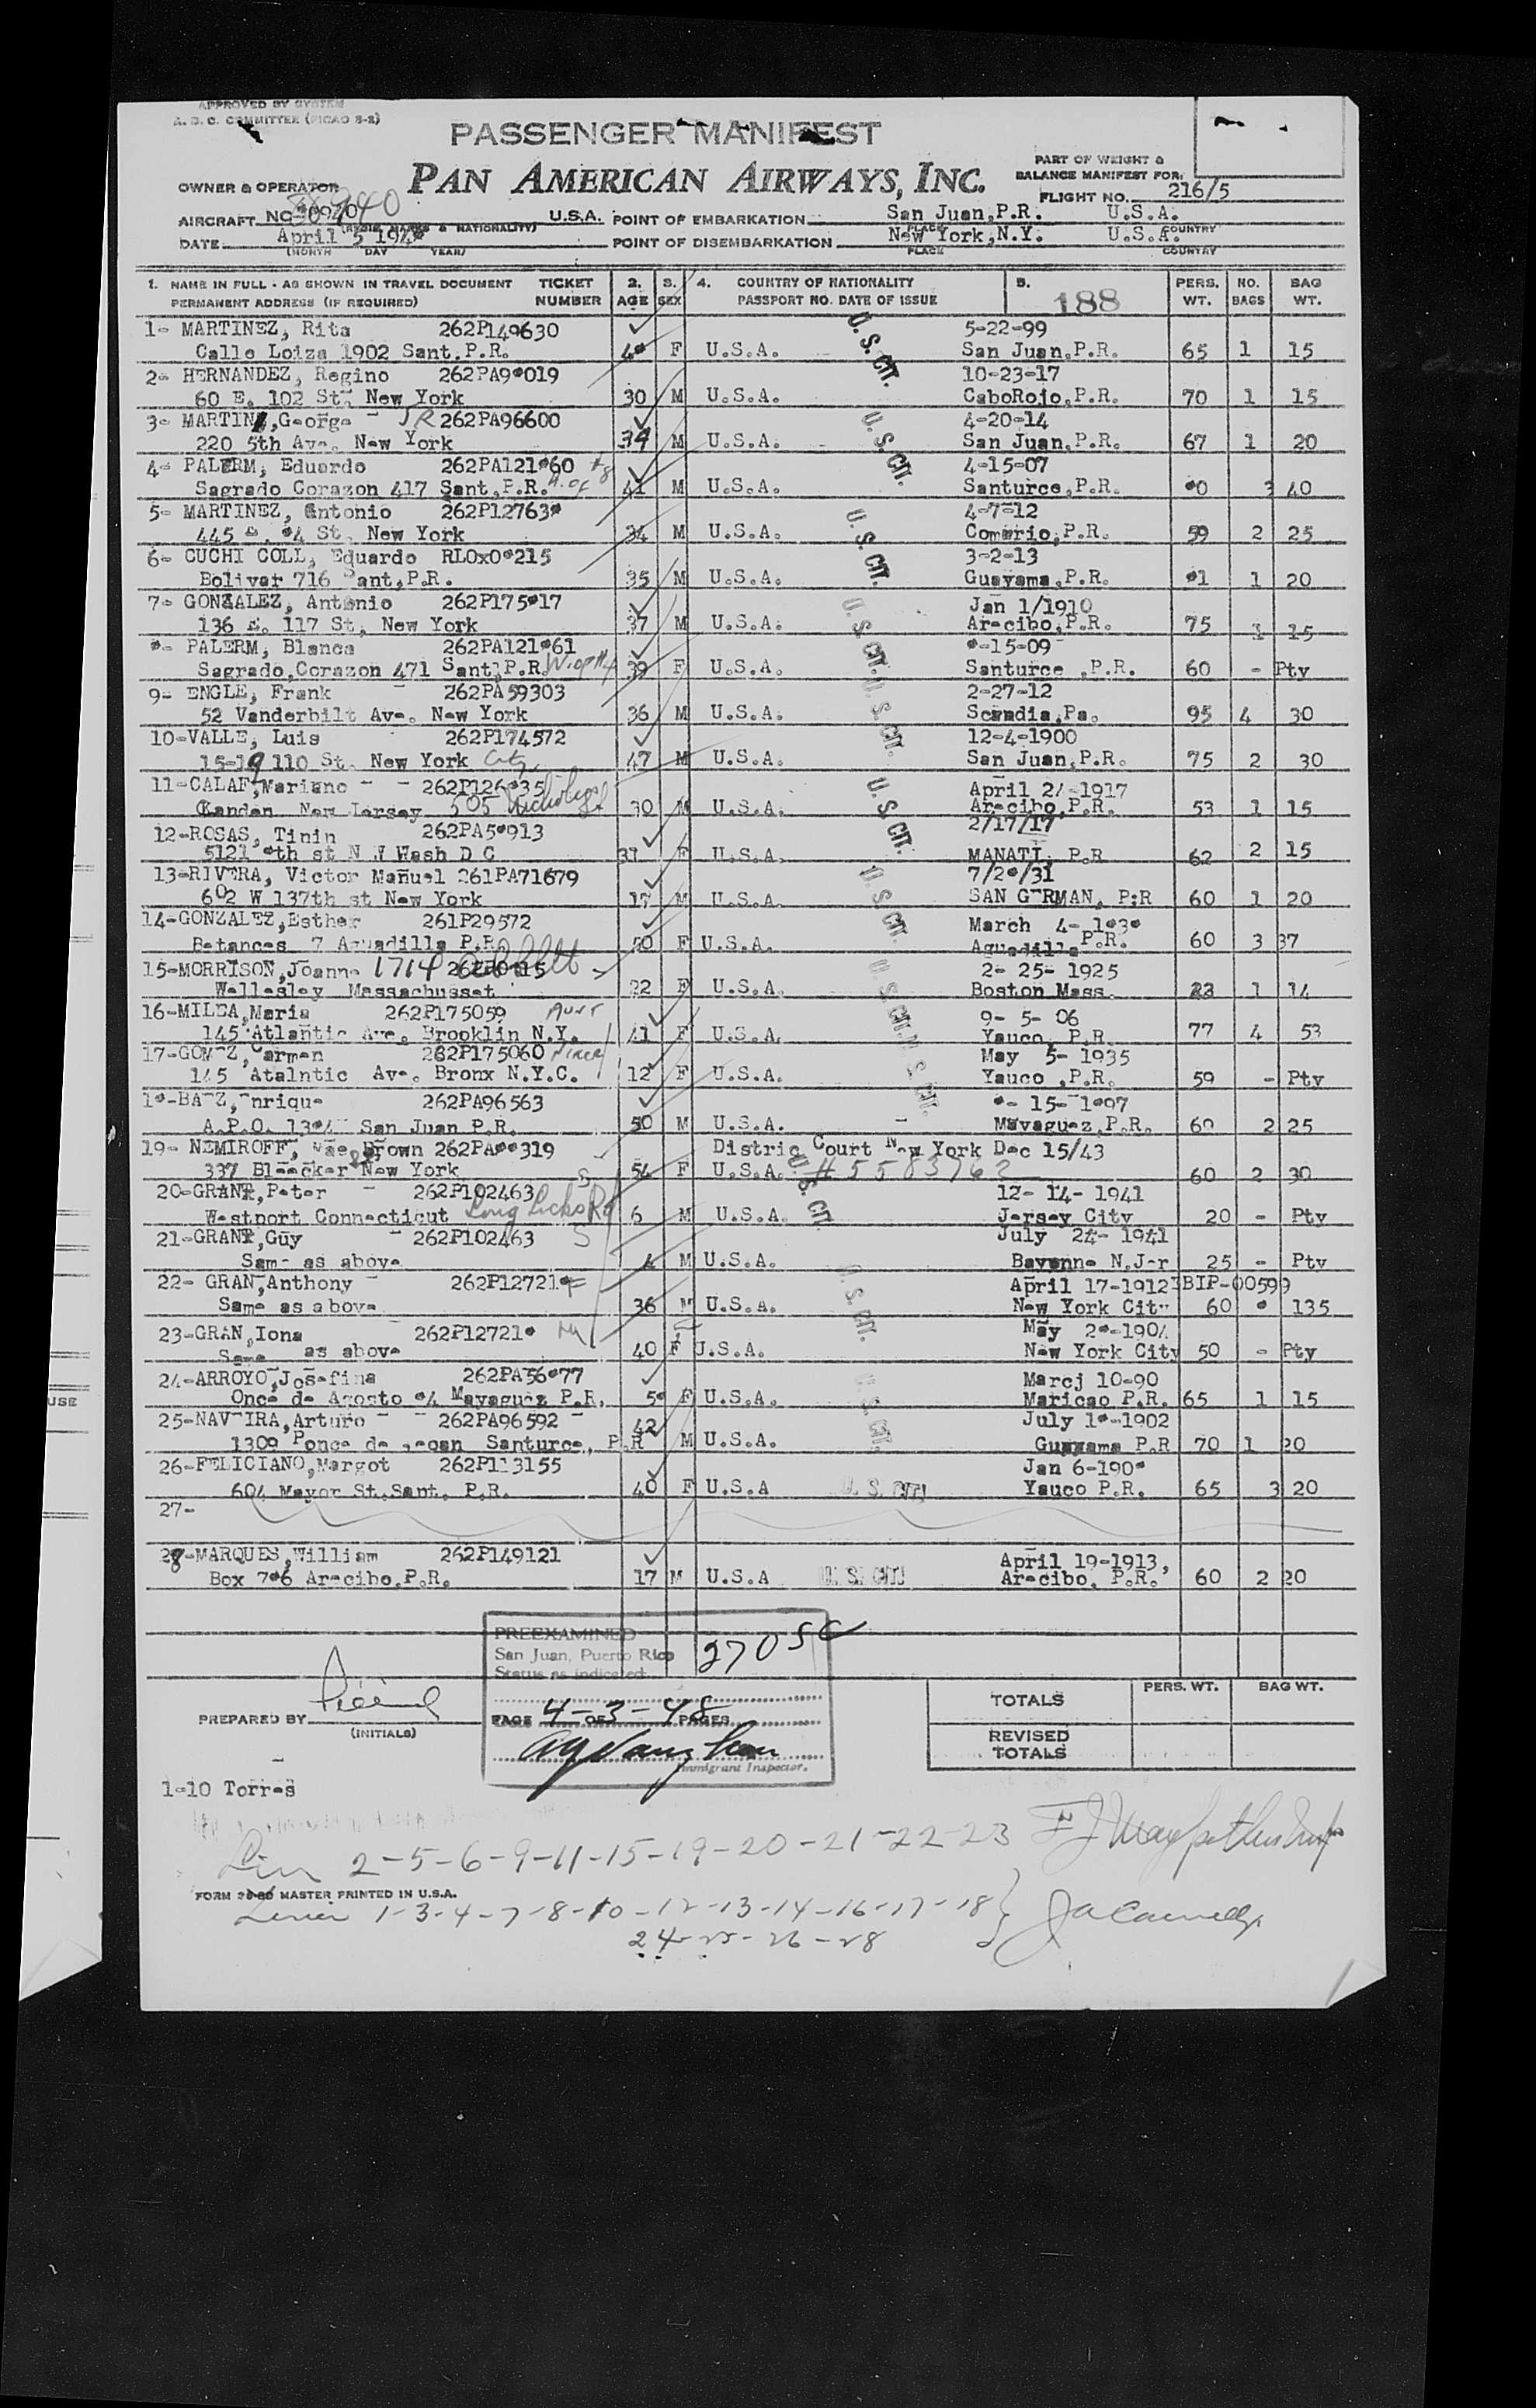 APPROVED BY SYSTEM
A. D. C. COMMITTEE (PICAO 8-2)
PASSENGER MANIFEST
PAN AMERICAN AIRWAYS, INC.
PART OF WEIGHT &
BALANCE MANIFEST FOR:
OWNER & OPERATOR
FLIGHT NO. 216/5
AIRCRAFT NC U.S.A. POINT OF EMBARKATION San Juan,P.R. U.S.A.
(REGIS. MARKS & NATIONALITY) PLACE COUNTRY
DATE April 5 194 POINT OF DISEMBARKATION New York,N.Y. U.S.A.
(MONTH DAY YEAR) PLACE COUNTRY
1. NAME IN FULL - AS SHOWN IN TRAVEL DOCUMENT TICKET 2. 3. 4. COUNTRY OF NATIONALITY 5. PERS. NO. BAG
PERMANENT ADDRESS (IF REQUIRED) NUMBER AGE SEX PASSPORT NO. DATE OF ISSUE 188 WT. BAGS WT.
1- MARTINEZ, Rita 262P149630 5-22-99
Calle Loiza 1902 Sant.P.R. F U.S.A. U.S. CIT. San Juan,P.R. 65 1 15
2- HERNANDEZ, Regino 10-23-17
60 E. 102 St. New York 30 M U.S.A. CaboRojo,P.R. 70 1 15
3- MARTIN,George JR 262PA96600 4-20-14
220 5th Ave. New York 34 M U.S.A. U.S. CIT. San Juan,P.R. 67 1 20
4- PALERM, Eduardo 4-15-07
Sagrado Corazon 417 Sant.P.R. H. of 41 M U.S.A. Santurce,P.R. 3 40
5- MARTINEZ, Antonio 4-7-12
445 St. New York 34 M U.S.A. U.S. CIT. Comerio,P.R. 59 2 25
6- CUCHI COLL, Eduardo 3-2-13
Bolivar 716 Sant,P.R. 35 M U.S.A. Guayama,P.R. 1 20
7- GONZALEZ, Antonio Jan 1/1910
136 E. 117 St, New York 37 M U.S.A. U.S. CIT. Arecibo,P.R. 75 1 15
PALERM, Blanca -15-09
Sagrado,Corazon 471 Sant,P.R. W. of 39 F U.S.A. Santurce ,P.R. 60 - Pty
9- ENGLE, Frank 262PA59303 2-27-12
52 Vanderbilt Ave. New York 36 M U.S.A. U.S. CIT. Scandia,Pa. 95 4 30
10-VALLE, Luis 262P174572 12-4-1900
15-19 110 St. New York City 47 M U.S.A. San Juan,P.R. 75 2 30
11-CALAF,Mariano April 24-1917
Camden New Jersey 505 30 M U.S.A. U.S. CIT. Arecibo,P.R. 53 1 15
12-ROSAS, Tinin 2/17/17
5121 th st N W Wash D C 31 F U.S.A. MANATI, P.R 62 2 15
13-RIVERA, Victor Manuel 261PA71679 /31
602 W 137th st New York 17 M U.S.A. U.S. CIT. SAN GERMAN, P:R 60 1 20
14-GONZALEZ,Esther 261P29572 March 4-
Betances 7 Aguadilla P.R. F U.S.A. Aguadilla P.R. 60 3 37
15-MORRISON,Joanne 1714 2- 25- 1925
Wellesley Massachusset 22 F U.S.A. U.S. CIT. Boston Mass. 23 1 14
16-MILEA,Maria 262P175059 Aunt 9- 5- 06
145 Atlantic Ave. Brooklin N.Y. 41 F U.S.A. Yauco, P.R. 77 4 53
17-GOMEZ, Carmen 262P175060 Niece May 5- 1935
145 Atalntic Ave. Bronx N.Y.C. 12 F U.S.A. U.S. CIT. Yauco ,P.R. 59 - Pty
BAEZ,Enrique 262PA96563 - 15-
A.P.O. San Juan P.R. 50 M U.S.A. Mayaguez,P.R. 60 2 25
19- NEMIROFF, Mae Brown Distric Court New York Dec 15/43
337 Bleecker St New York 54 F U.S.A. #5583762 60 2 30
20-GRANT,Peter 262P102463 12- 14- 1941
Westport Connecticut Long Rd 6 M U.S.A. U.S. CIT. Jersey City 20 - Pty
21-GRANT,Guy 262P102463 S July 24- 1941
Same as above M U.S.A. Bayonne N.Jer 25 - Pty
22- GRAN,Anthony April 17-1912 BIP-00599
Same as above 36 M U.S.A. U.S. CIT. New York City 60 135
23-GRAN,Iona May -1904
Same as above 40 F U.S.A. New York City 50 - Pty
24-ARROYO,Josefina Marcj 10-90
Once de Agosto Mayaguez P.R. F U.S.A. U.S. CIT. Maricao P.R. 65 1 15
25-NAVEIRA,Arturo 262PA96592 42 July -1902
1309 Ponce de Leoan Santurce, P.R M U.S.A. Guayama P.R 70 1 20
26-FELICIANO,Margot 262P113155 Jan 6-190
604 Mayor St.Sant. P.R. 40 F U.S.A U.S. CIT. Yauco P.R. 65 3 20
27-
28-MARQUES,William 262P149121 April 19-1913,
Box Arecibo,P.R. 17 M U.S.A U.S. CIT. Arecibo, P.R. 60 2 20
PREEXAMINED
San Juan, Puerto Rico 270SC
Status as indicated
PAGE OF PAGES
4-3-48
Immigrant Inspector.
PREPARED BY
(INITIALS)
PERS. WT. BAG WT.
TOTALS
REVISED
TOTALS
1-10 Torres
2-5-6-9-11-15-19-20-21-22-23
FORM MASTER PRINTED IN U.S.A.
1-3-4-7-8-10-12-13-14-16-17-18
24-25-26-28
USE